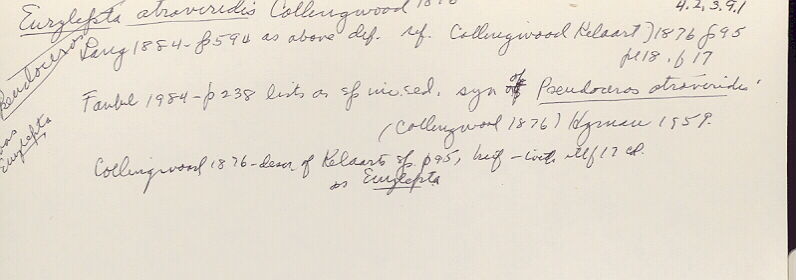 Eurylepta atroviridis Collingwood 1876
4.2.3.9.1
Lang 1884 - p 594 as above def. ref. Collingwood (Kelaart) 1876 p 95
pl 18. f 17
Pseudoceros
was Eurylepta
Faubel 1984 - p 238 lists as sp inc. sed. syn of Pseudoceros atroviridis
(Collingwood 1876) Hyman 1959.
Collingwood 1876 - descr of Kelaarts sp. p 95, brief - with f 17 col.
as Eurylepta